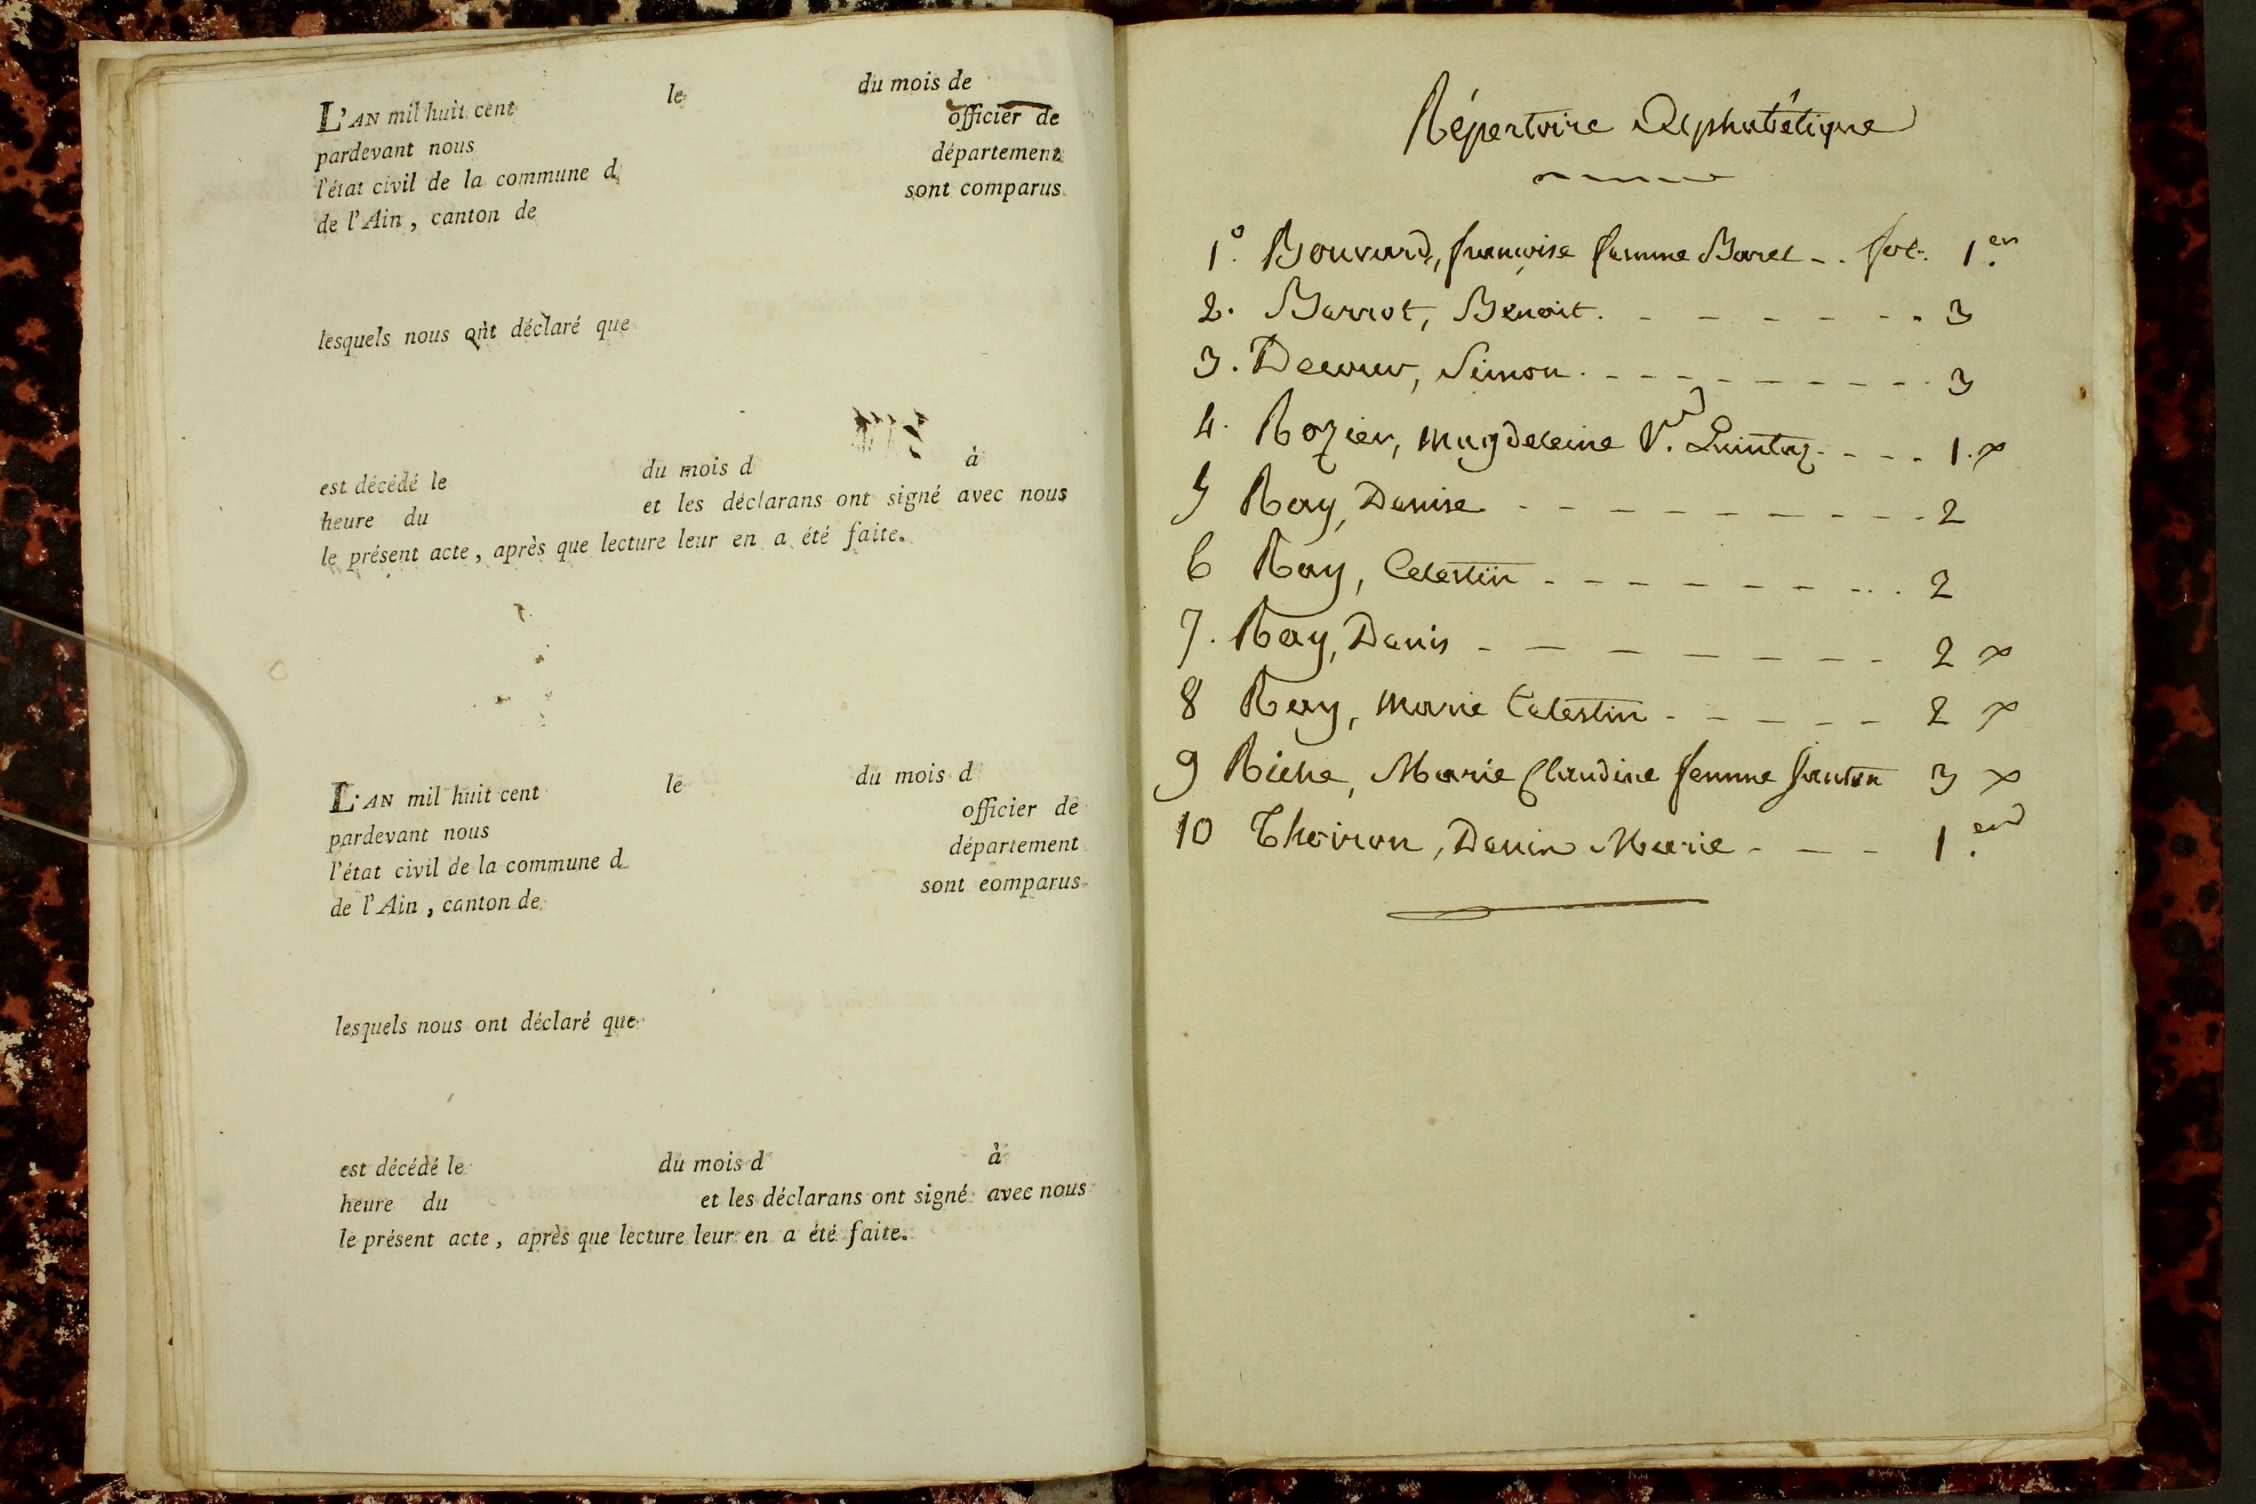 L'AN mil huit cent le du mois de
pardevant nous officier de
l'état civil de la commune d département
de l'Ain, canton de sont comparus
lesquels nous ont déclaré que
est décédé le du mois d à
heure du et les déclarans ont signé avec nous
le présent acte, après que lecture leur en a été faite.
L'AN mil huit cent le du mois d
pardevant nous officier de
l'état civil de la commune d département
de l'Ain, canton de sont comparus
lesquels nous ont déclaré que
est décédé le du mois d à
heure du et les déclarans ont signé avec nous
le présent acte, après que lecture leur en a été faite.
Répertoire Alphabétique
1° Bouvard, françoise femme Borel - . fol. 1.er
2. Barrot, Benoit. - - - - - - - 3
3. Simon. - - - - - - - - - 3
4. Rozier, Magdeleine V.e Quintaz. - - - . 1.
5 Ray, Denise - - - - - - - - - 2
6 Ray, Celestin - - - - - - - - . 2
7. Ray, Denis - - - - - - - - 2
8 Ray, Marie Celestin - - - - - - 2
9 Riche, Marie Claudine femme 3
10 Thoiron, Marie - - - 1.er